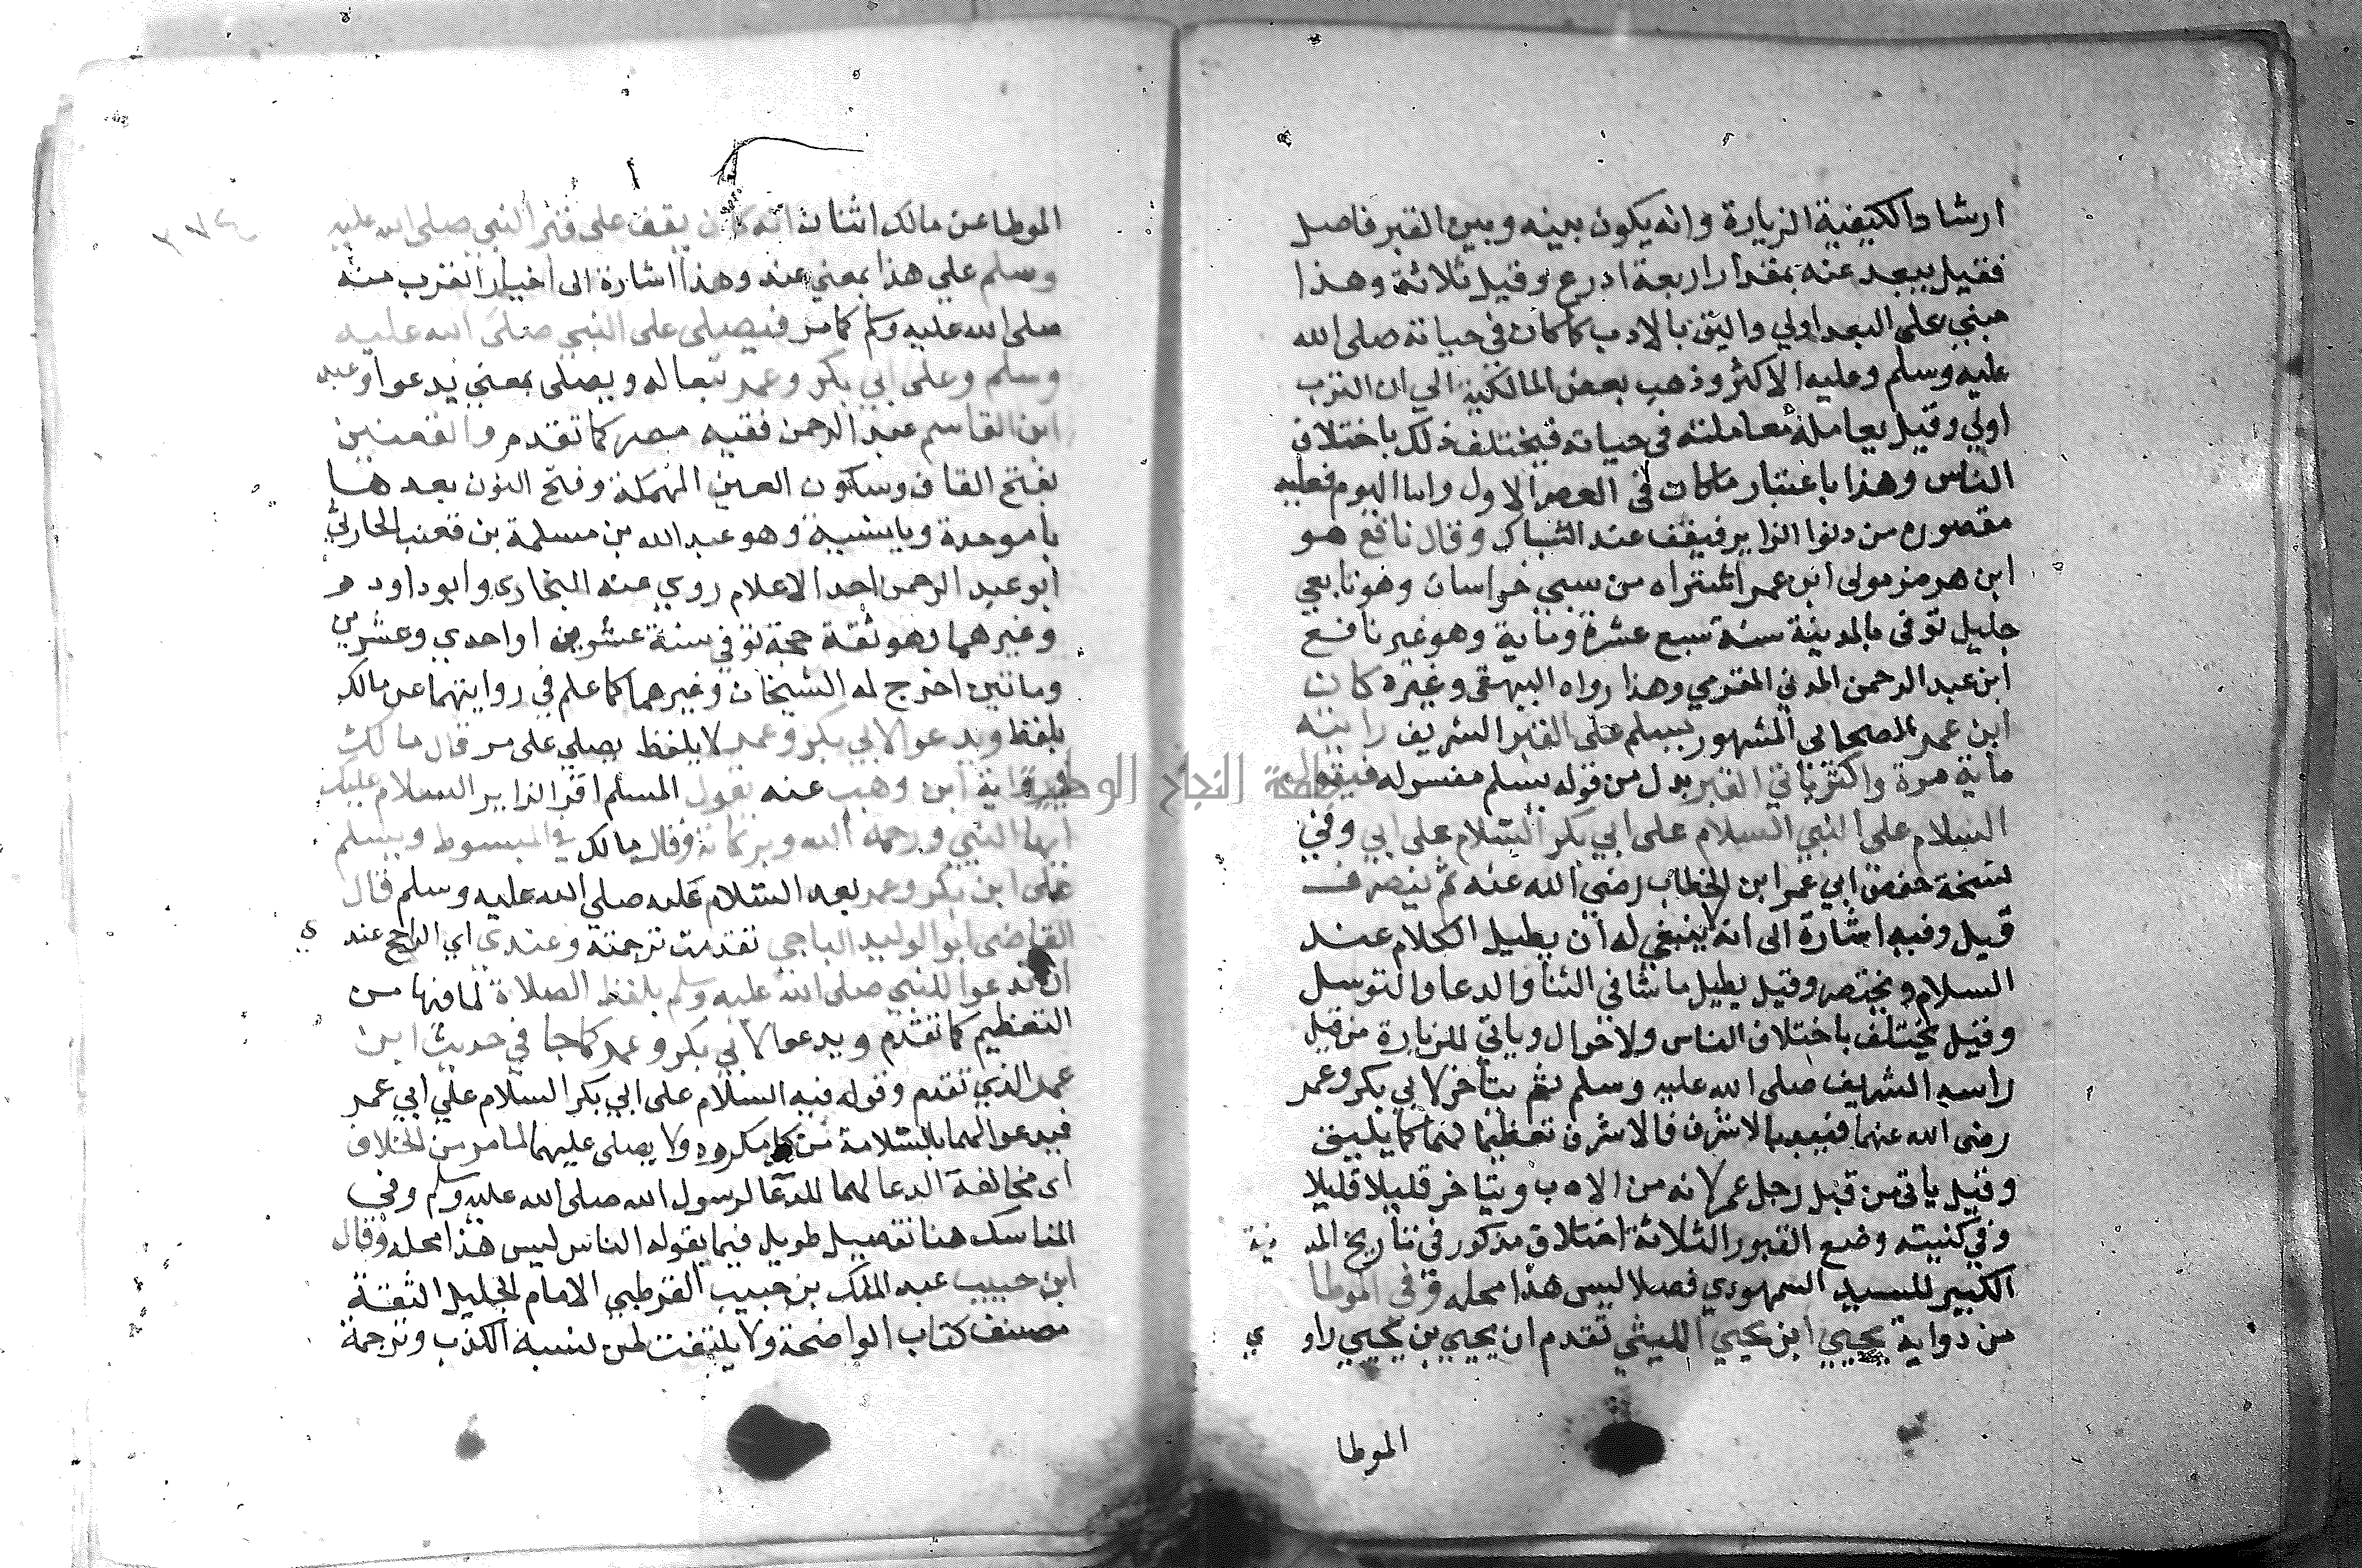 ارشاد الكيفية الزيارة وانه يكون بينه وبين القبر فاصل
فقيل يبعد عنه بمقدار اربعة اذرع وقيل ثلاثة وهذا
مبني على البعد اولي واليق بالادب كما كان في حياته صلى الله
عليه وسلم وعليه الاكثر وذهب بعض المالكية الي ان القرب
اولي وقيل يعامله معاملته في حياته فيختلف ذلك باختلاف
الناس وهذا باعتبار ما كان في العصر الاول واما اليوم فعليه
مقصوره من دنوا الزاير فيقف عند الشباك وقال نافع هو
ابن هرمز مولى ابن عمر اشتراه من سبي خراسان وهو تابعي
جليل توفى بالمدينة سنة سبع عشرة وماية وهو غير نافع
ابن عبد الرحمن المدني المقري وهذا رواه البيهقى وغيره كان
ابن عمر الصحابي المشهور يسلم على القبر الشريف رايته
ماية مرة واكثر ياتي القبر بدل من قوله يسلم مفسر له فيقول
السلام على النبي السلام على ابي بكر السلام على ابي وفي
نسخة حفص ابي عمر ابن الخطاب رضي الله عنه ثم ينصرف
قيل وفيه اشارة الى انه لا ينبغي له ان يطيل الكلام عند
السلام ويختصر وقيل يطيل ما شا في الثنا والدعا والتوسل
وقيل يختلف باختلاف الناس والاحوال وياتي للزيارة من قبل
راسه الشريف صلى الله عليه وسلم ثم يتاخر لابي بكر وعمر
رضى الله عنهما فيبدا بالاشرف فالاشرف تعظيما لهما كما يليق
وقيل ياتي من قبل رجل عمر لانه من الادب ويتاخر قليلا قليلا
وفي كيفيته وضع القبور الثلاثة اختلاف مذكور في تاريخ المدينة
الكبير للسيد السمهودي فصلا ليس هذا محله وفي الموطا
من رواية يحيي ابن يحيي الليثي تقدم ان يحيي بن يحيي راوي
الموطا
الموطا عن مالك اثنان انه كان يقف على قبر النبي صلى الله عليه
وسلم علي هذا بمعني عند وهذا اشارة الى اختيار القرب منه
صلى الله عليه وسلم كما مر فيصلى على النبي صلى الله عليه
وسلم وعلى ابي بكر وعمر تبعا له ويصلى بمعني يدعوا وعند
ابن القاسم عبد الرحمن فقيه مصر كما تقدم والقعنبي
بفتح القاف وسكون العين المهملة وفتح النون بعدها
با موحدة ويا نسبة وهو عبد الله بن مسلمة بن قعنب الحارثي
ابو عبد الرحمن احد الاعلام روي عنه البخاري وابو داود
وغيرهما وهو ثقة حجة توفي سنة عشرين او احدي وعشرين
وماتين اخرج له الشيخان وغيرهما كما علم في روايتهما عن مالك
بلفظ ويدعو لابي بكر وعمر لا بلفظ يصلي على مر قال مالك
في رواية ابن وهب عنه يقول المسلم اي الزاير السلام عليك
ايها النبي ورحمه الله وبركاته وقال مالك في المبسوط ويسلم
على ابي بكر وعمر بعد السلام عليه صلى الله عليه وسلم قال
القاضى ابو الوليد الباجي تقدمت ترجمته وعندي اي الراجح عندي
ان يدعوا للنبي صلى الله عليه وسلم بلفظ الصلاة لما فيها من
التعظيم كما تقدم ويدعوا لابي بكر وعمر كما جا في حديث ابن
عمر الذي تقدم وقوله فيه السلام على ابي بكر السلام علي ابي عمر
فيدعو لهما بالسلامة من كل مكروه ولا يصلى عليهما لما مر من الخلاف
اى مخالفة الدعا لهما للدعا لرسول الله صلى الله عليه وسلم وفي
المناسك هنا تفصيل طويل فيما يقوله الناس ليس هذا محله وقال
ابن حبيب عبد الملك بن حبيب القرطبي الامام الجليل الثقة
مصنف كتاب الواضحة ولا يلتفت لمن نسبه الكذب وترجمة